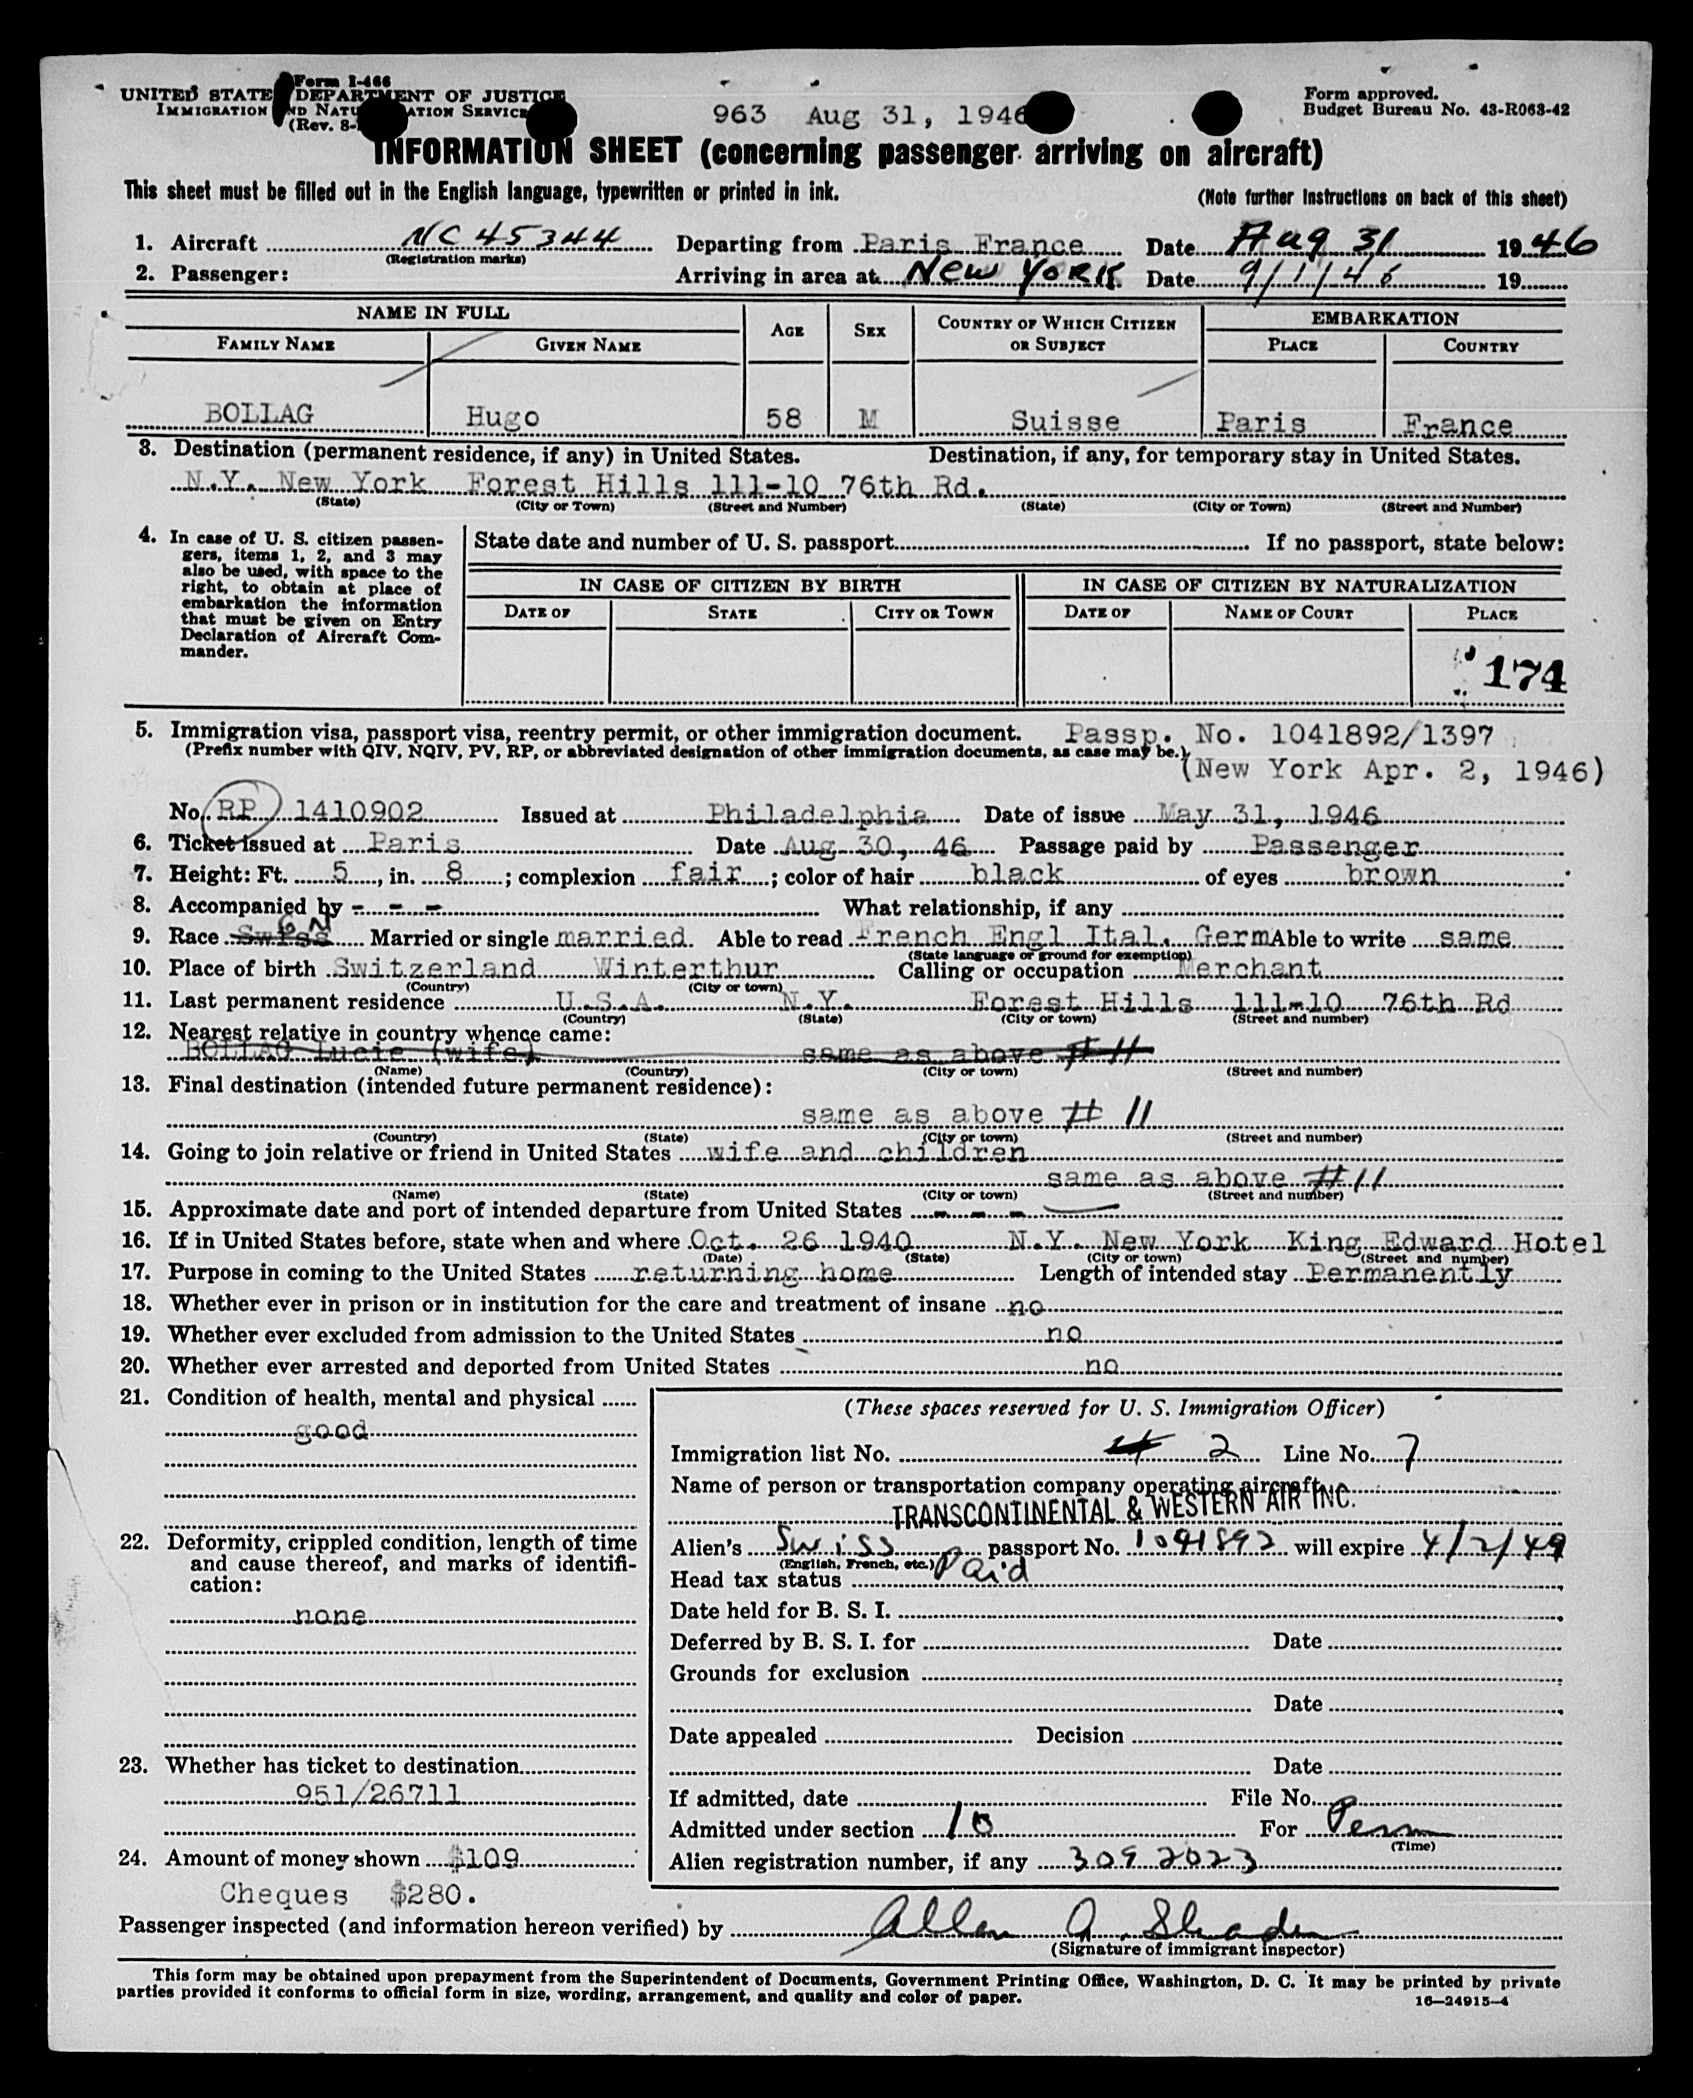 Form I-466
UNITED STATE DEPARTMENT OF JUSTICE
IMMIGRATION AND NATU ATION SERVICE
(Rev. 8-
963 Aug 31, 1946
Form approved.
Budget Bureau No. 43-R063-42
INFORMATION SHEET (concerning passenger arriving on aircraft)
This sheet must be filled out in the English language, typewritten or printed in ink.
(Note further instructions on back of this sheet)
1. Aircraft NC 45344 Departing from Paris France Date Aug 31 1946
(Registration marks)
2. Passenger: Arriving in area at New York Date 9/1/46 19
NAME IN FULL AGE SEX COUNTRY OF WHICH CITIZEN OR SUBJECT EMBARKATION
FAMILY NAME GIVEN NAME PLACE COUNTRY
BOLLAG Hugo 58 M Suisse Paris France
3. Destination (permanent residence, if any) in United States. Destination, if any, for temporary stay in United States.
N.Y. New York Forest Hills 111-10 76th Rd.
(State) (City or Town) (Street and Number) (State) (City or Town) (Street and Number)
4. In case of U. S. citizen passen-
gers, items 1, 2, and 3 may
also be used, with space to the
right, to obtain at place of
embarkation the information
that must be given on Entry
Declaration of Aircraft Com-
mander.
State date and number of U. S. passport If no passport, state below:
IN CASE OF CITIZEN BY BIRTH IN CASE OF CITIZEN BY NATURALIZATION
DATE OF STATE CITY OR TOWN DATE OF NAME OF COURT PLACE
174
5. Immigration visa, passport visa, reentry permit, or other immigration document. Passp. No. 1041892/1397
(Prefix number with QIV, NQIV, PV, RP, or abbreviated designation of other immigration documents, as case may be.)
(New York Apr. 2, 1946)
No. RP 1410902 Issued at Philadelphia Date of issue May 31, 1946
6. Ticket issued at Paris Date Aug 30, 46 Passage paid by Passenger
7. Height: Ft. 5, in. 8; complexion fair; color of hair black of eyes brown
8. Accompanied by - - - What relationship, if any
9. Race Swiss Married or single married Able to read French Engl Ital. Germ Able to write same
(State language or ground for exemption)
10. Place of birth Switzerland Winterthur Calling or occupation Merchant
(Country) (City or town)
11. Last permanent residence U.S.A. N.Y. Forest Hills 111-10 76th Rd
(Country) (State) (City or town) (Street and number)
12. Nearest relative in country whence came:
BOLLAG Lucie (wife) same as above # 11
(Name) (Country) (City or town) (Street and number)
13. Final destination (intended future permanent residence):
same as above # 11
(Country) (State) (City or town) (Street and number)
14. Going to join relative or friend in United States wife and children
same as above # 11
(Name) (State) (City or town) (Street and number)
15. Approximate date and port of intended departure from United States - - -
16. If in United States before, state when and where Oct. 26 1940 N.Y. New York King Edward Hotel
(Date) (State) (City or town) (Street and number)
17. Purpose in coming to the United States returning home Length of intended stay Permanently
18. Whether ever in prison or in institution for the care and treatment of insane no
19. Whether ever excluded from admission to the United States no
20. Whether ever arrested and deported from United States no
21. Condition of health, mental and physical
good
22. Deformity, crippled condition, length of time
and cause thereof, and marks of identifi-
cation:
none
23. Whether has ticket to destination
951/26711
24. Amount of money shown $109
Cheques $280.
(These spaces reserved for U. S. Immigration Officer)
Immigration list No. 4 2 Line No. 7
Name of person or transportation company operating aircraft
TRANSCONTINENTAL & WESTERN AIR INC.
Alien's Swiss passport No. 1041892 will expire 4/2/49
(English, French, etc.)
Head tax status Paid
Date held for B. S. I.
Deferred by B. S. I. for Date
Grounds for exclusion
Date
Date appealed Decision
Date
If admitted, date File No.
Admitted under section 10 For Perm
(Time)
Alien registration number, if any 3092023
Passenger inspected (and information hereon verified) by Allen A.
(Signature of immigrant inspector)
This form may be obtained upon prepayment from the Superintendent of Documents, Government Printing Office, Washington, D. C. It may be printed by private
parties provided it conforms to official form in size, wording, arrangement, and quality and color of paper.
16—24915-4